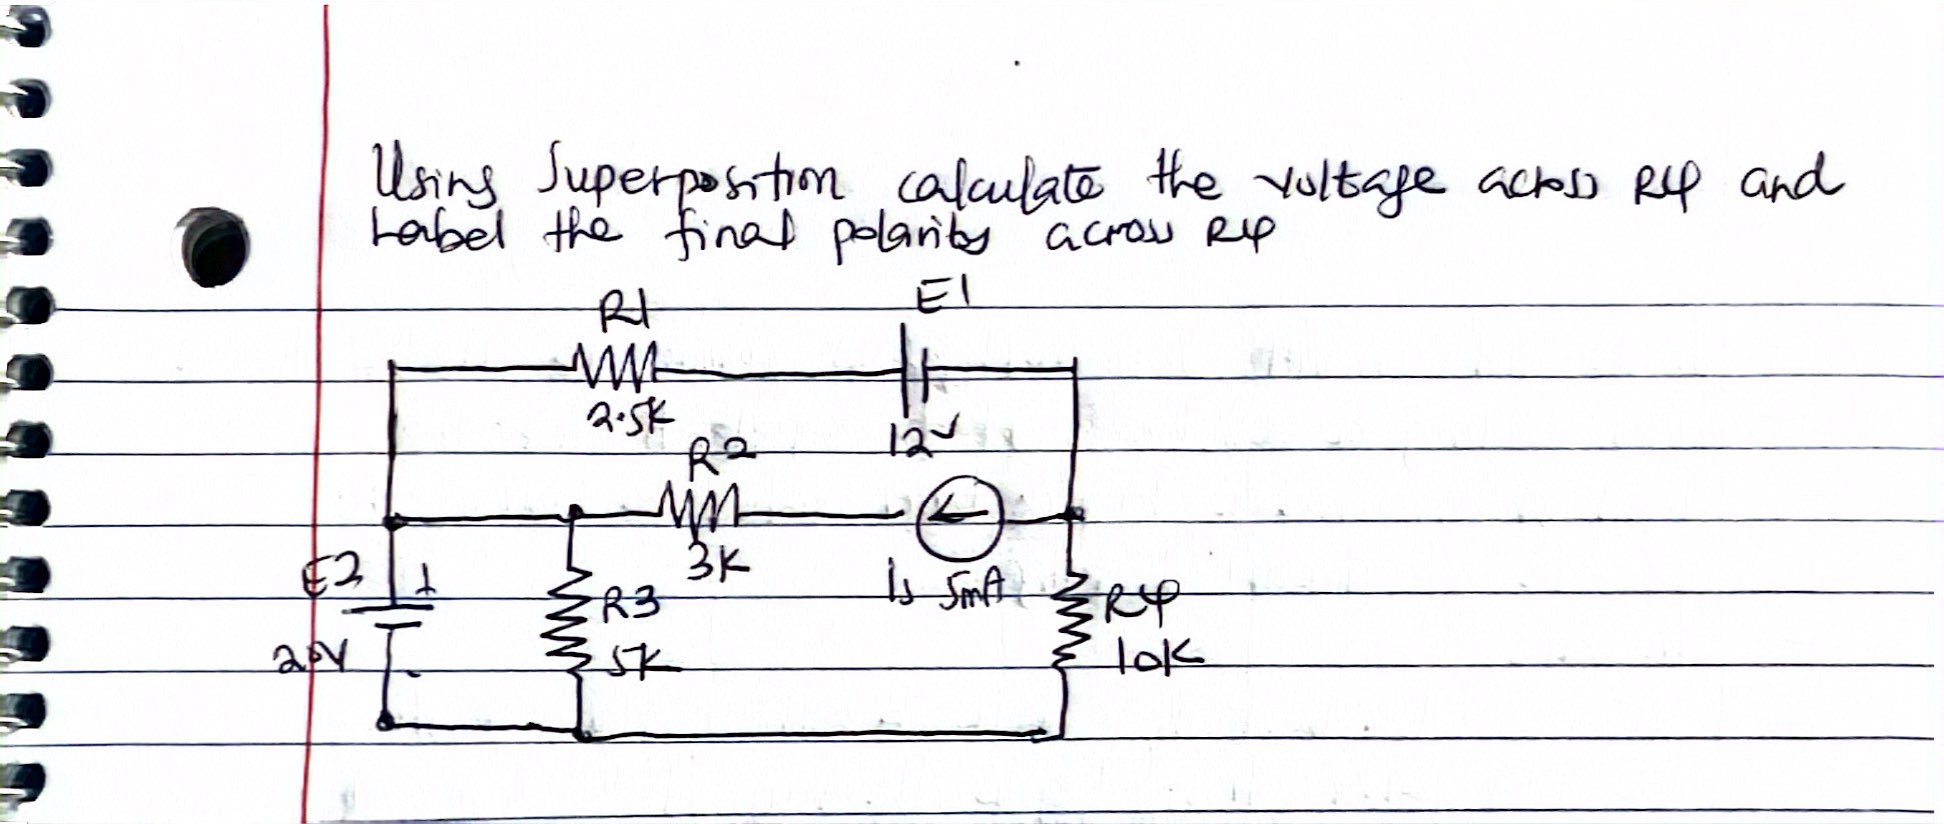 Using Superposition calculate the voltage across R4 and
Label the final polarity across R4
E1
R1
2.5K
12V
R2
3K
E2
+
R3
Is 5mA
R4
20V
-
5K
10K